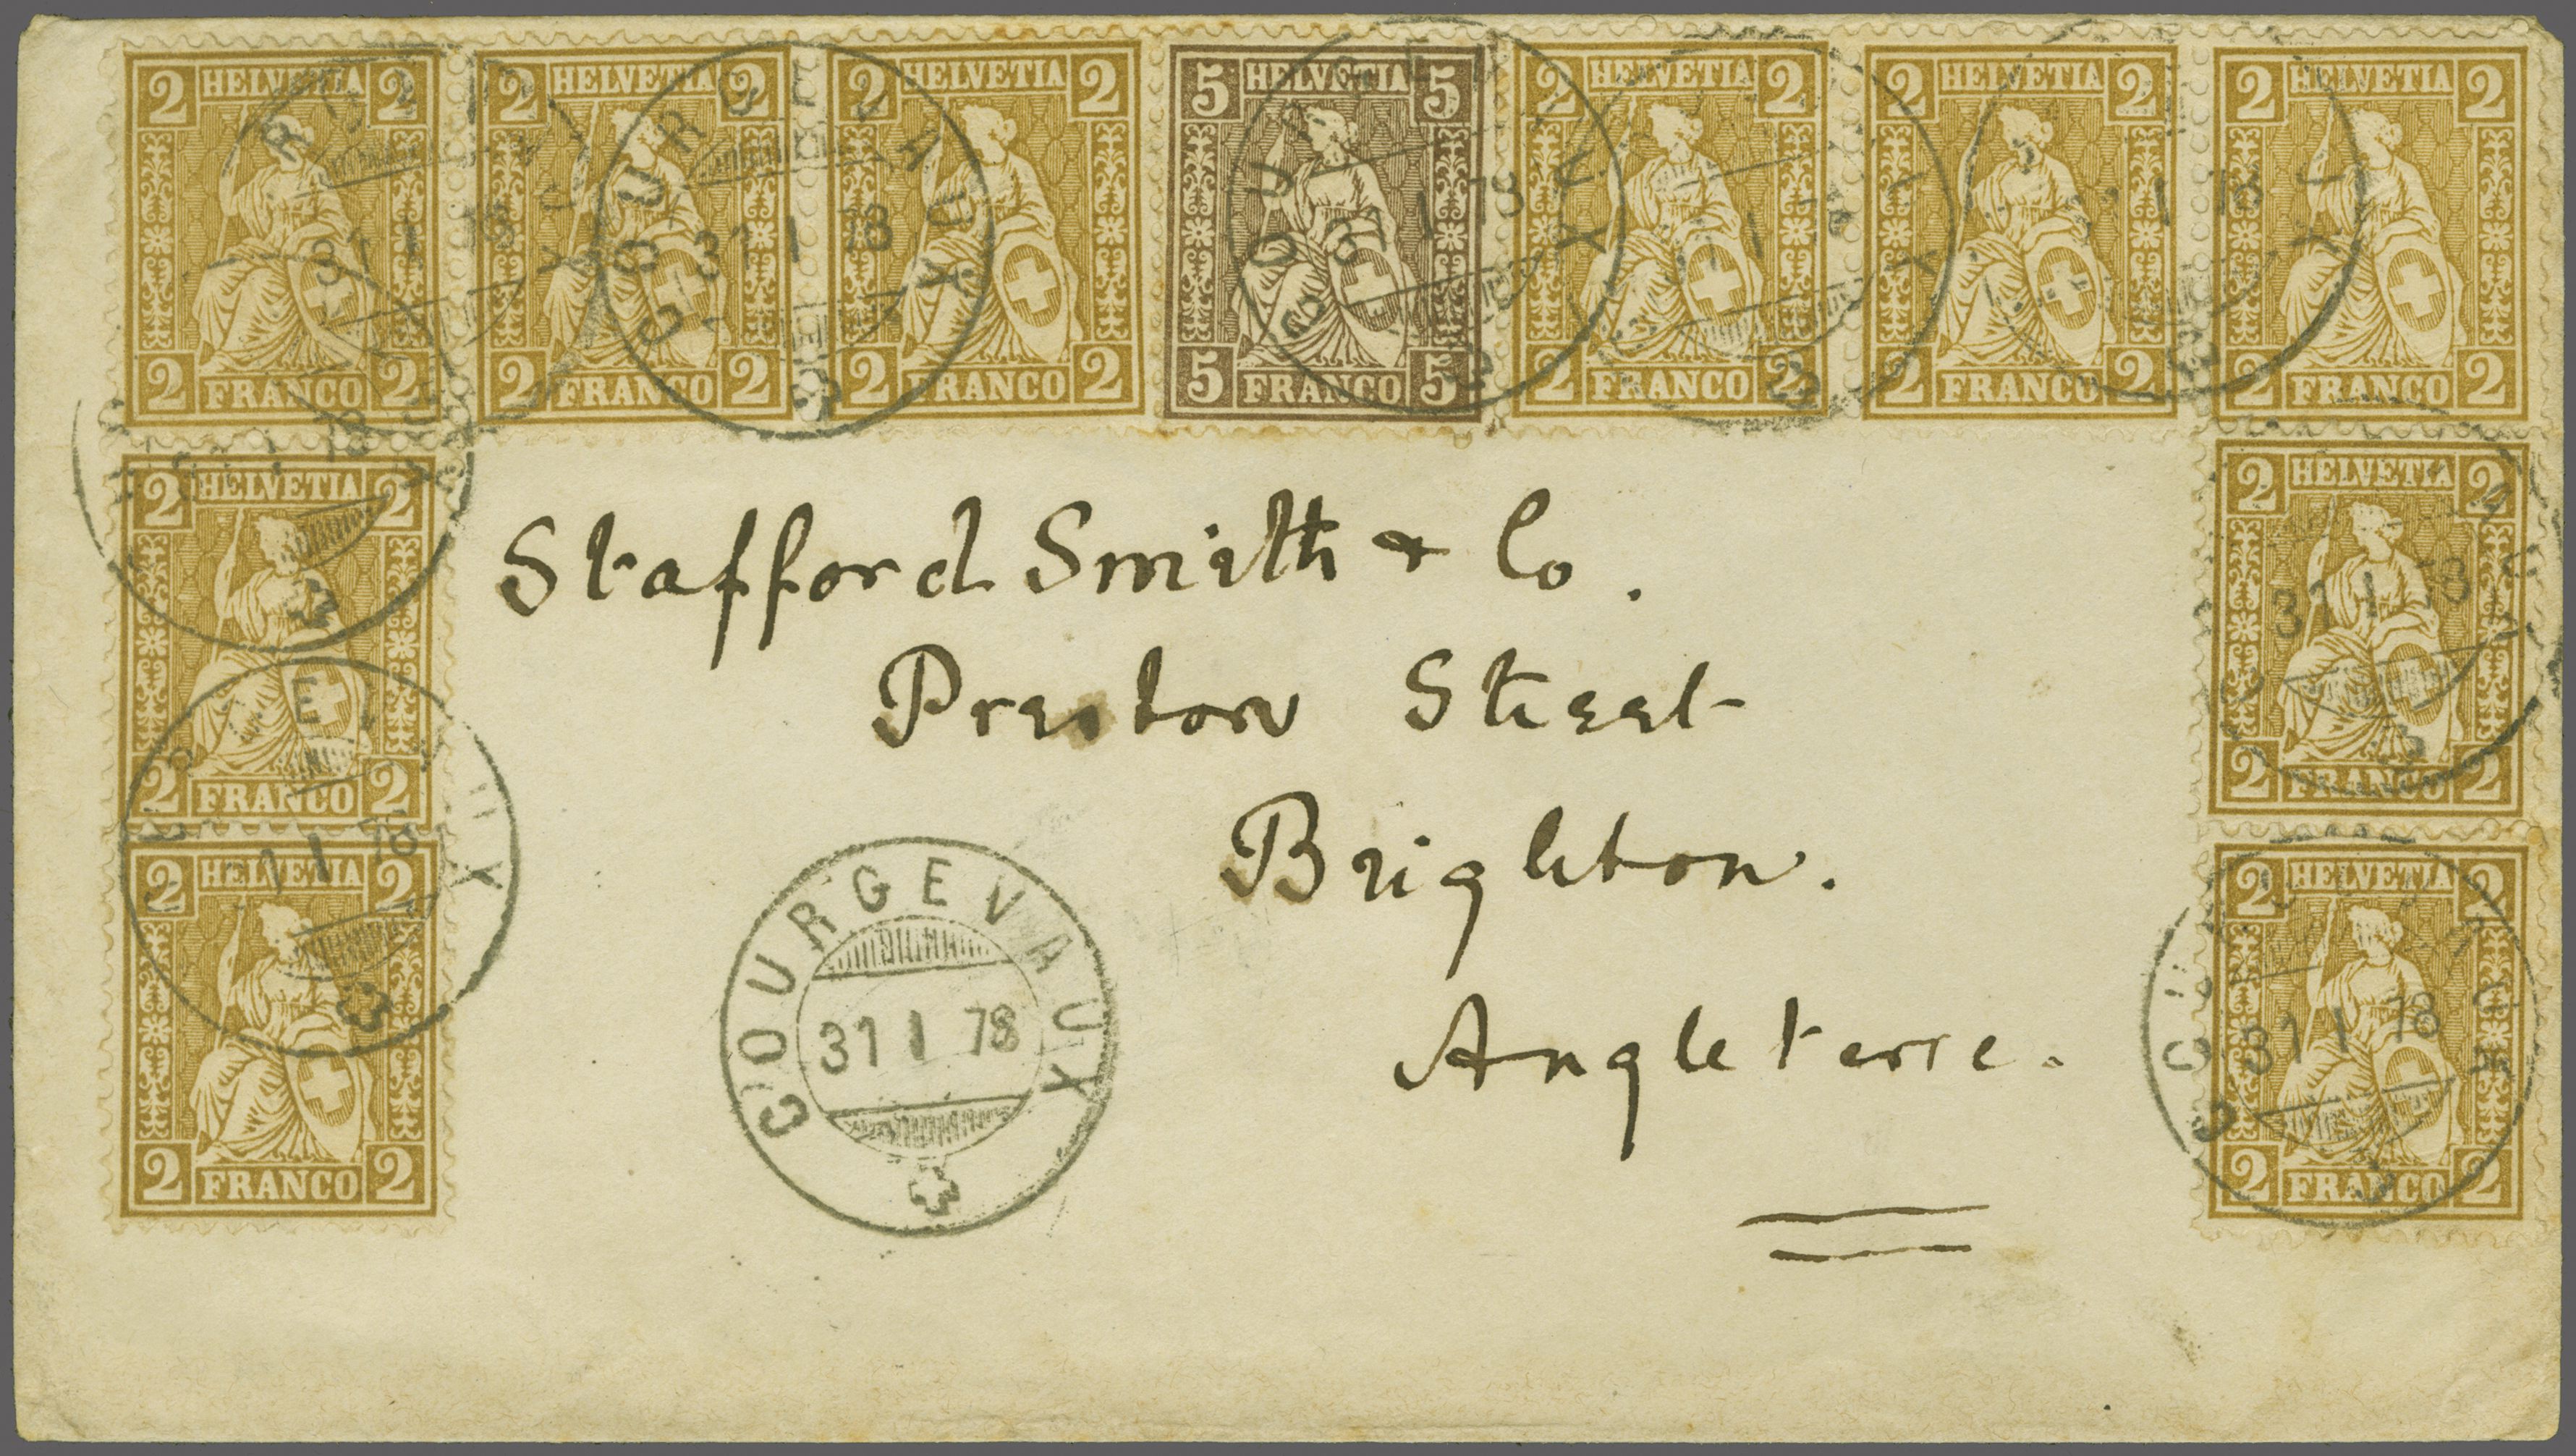 2 HELVETIA 2 2 HELVETIA 2 2 HELVETIA 2 5 HELVETIA 5 2 HELVETIA 2 2 HELVETIA 2 2 HELVETIA 2
COURGEVAUX
31 I 78
2 FRANCO 2 2 FRANCO 2 2 FRANCO 2 5 FRANCO 5 2 FRANCO 2 2 FRANCO 2 2 FRANCO 2
2 HELVETIA 2
2 FRANCO 2
2 HELVETIA 2
2 FRANCO 2
Stafford Smith & Co.
Preston Street
Brighton.
Angleterre.
COURGEVAUX
31 I 78
2 HELVETIA 2
31 I 78
2 FRANCO 2
2 HELVETIA 2
31 I 78
2 FRANCO 2